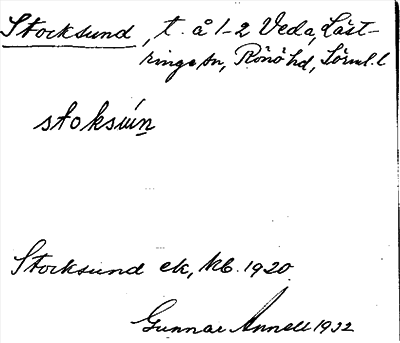 Stocksund, t. å 1-2 Veda, Läst-
ringe sn, Rönö hd, Sörml. l
stoksun
Stocksund ek, kb. 1920
Gunnar Annell 1932